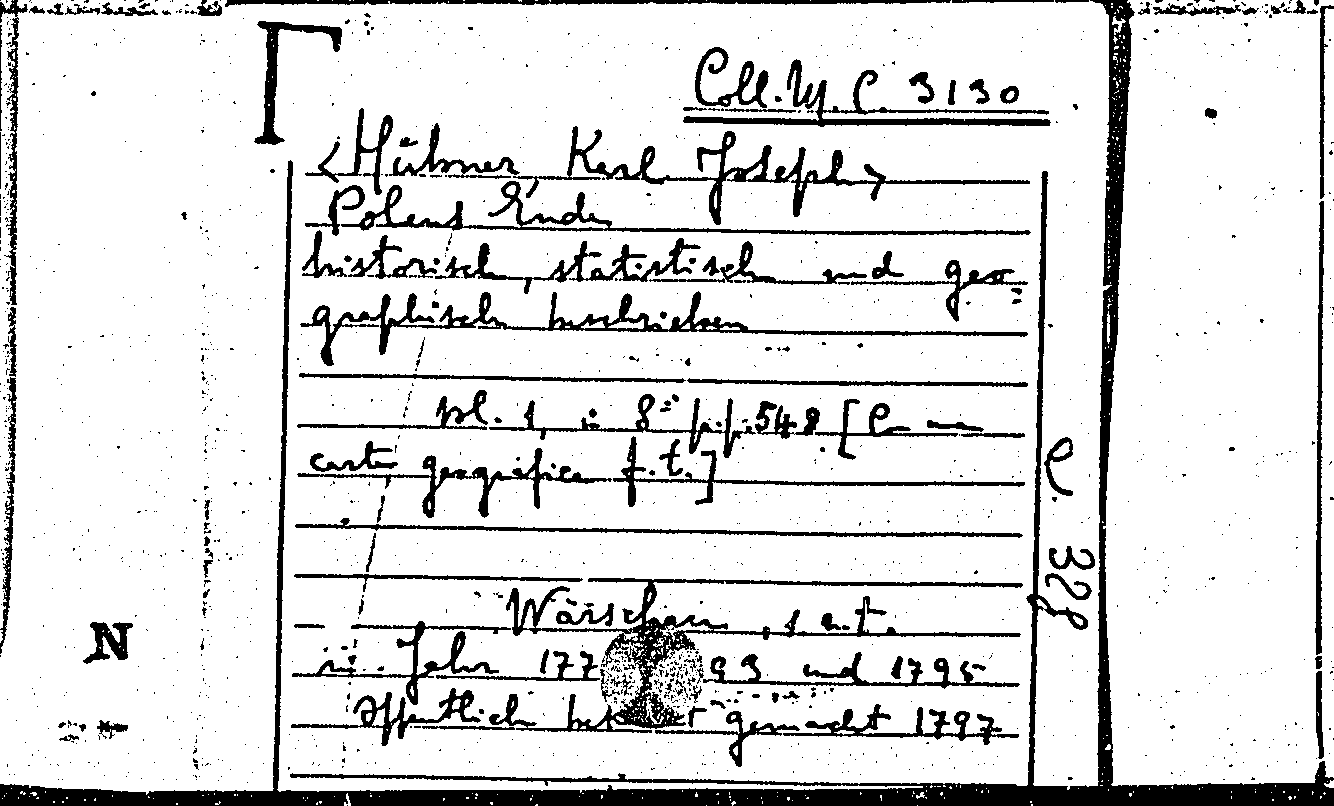 Coll. M. C. 3130
<Hübner, Karl Joseph>
Polens Ende
historisch, statistisch und geo=
graphisch beschrieben
vol. 1, in 8° p.p. 548 [Con una
carta geografica f.t.]
e. 328
Warschau, s.n.t.
im Jahr 177 93 und 1795
öffentlich gemacht 1797
N